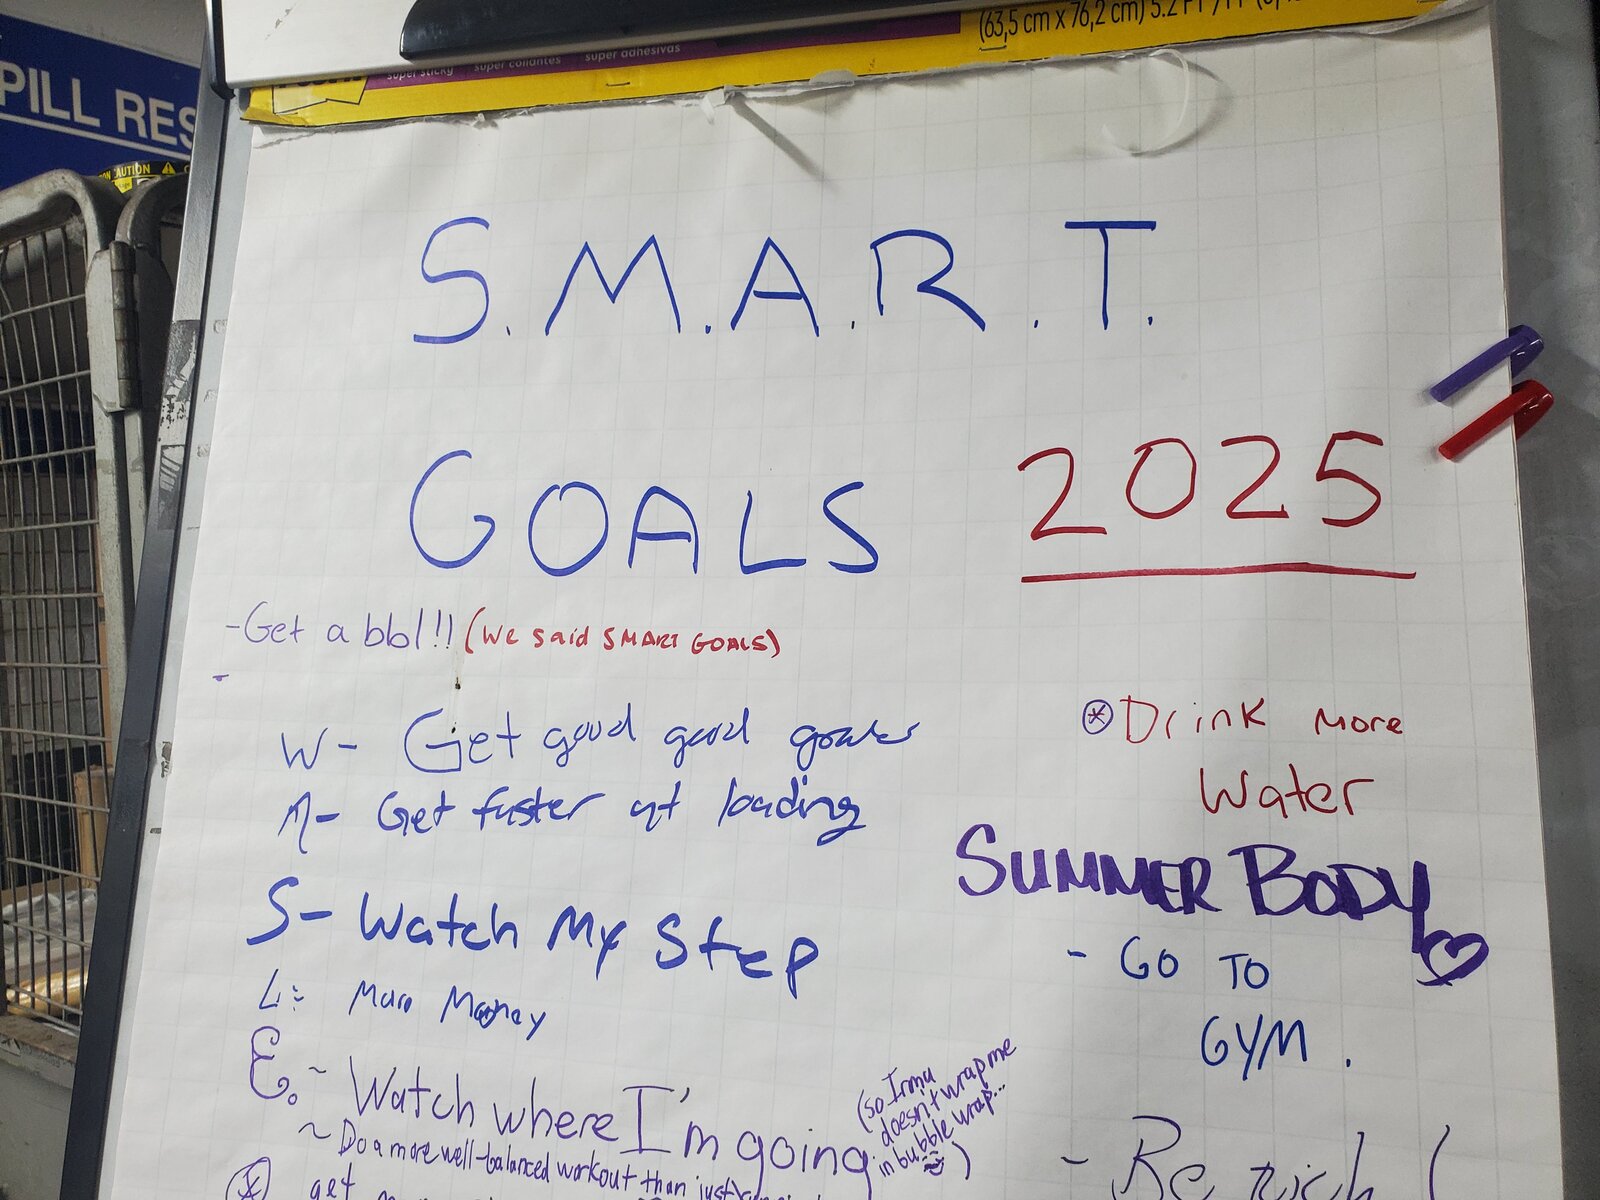 (63,5 cm x 76,2 cm) 5.2
super sticky super collantes super adhesivas
PILL RES
CAUTION
S.M.A.R.T.
GOALS 2025
-Get a bbl!! (We said SMART GOALS)
-
W- Get good good goals
M- Get faster at loading
S- Watch My Step
L: More Money
E. ~ Watch where I'm going (so Irma doesn't wrap me in bubble wrap...)
~ Do a more well-balanced workout than just
get
Drink More
Water
SUMMER BODY
- GO TO
GYM.
- Be rich (